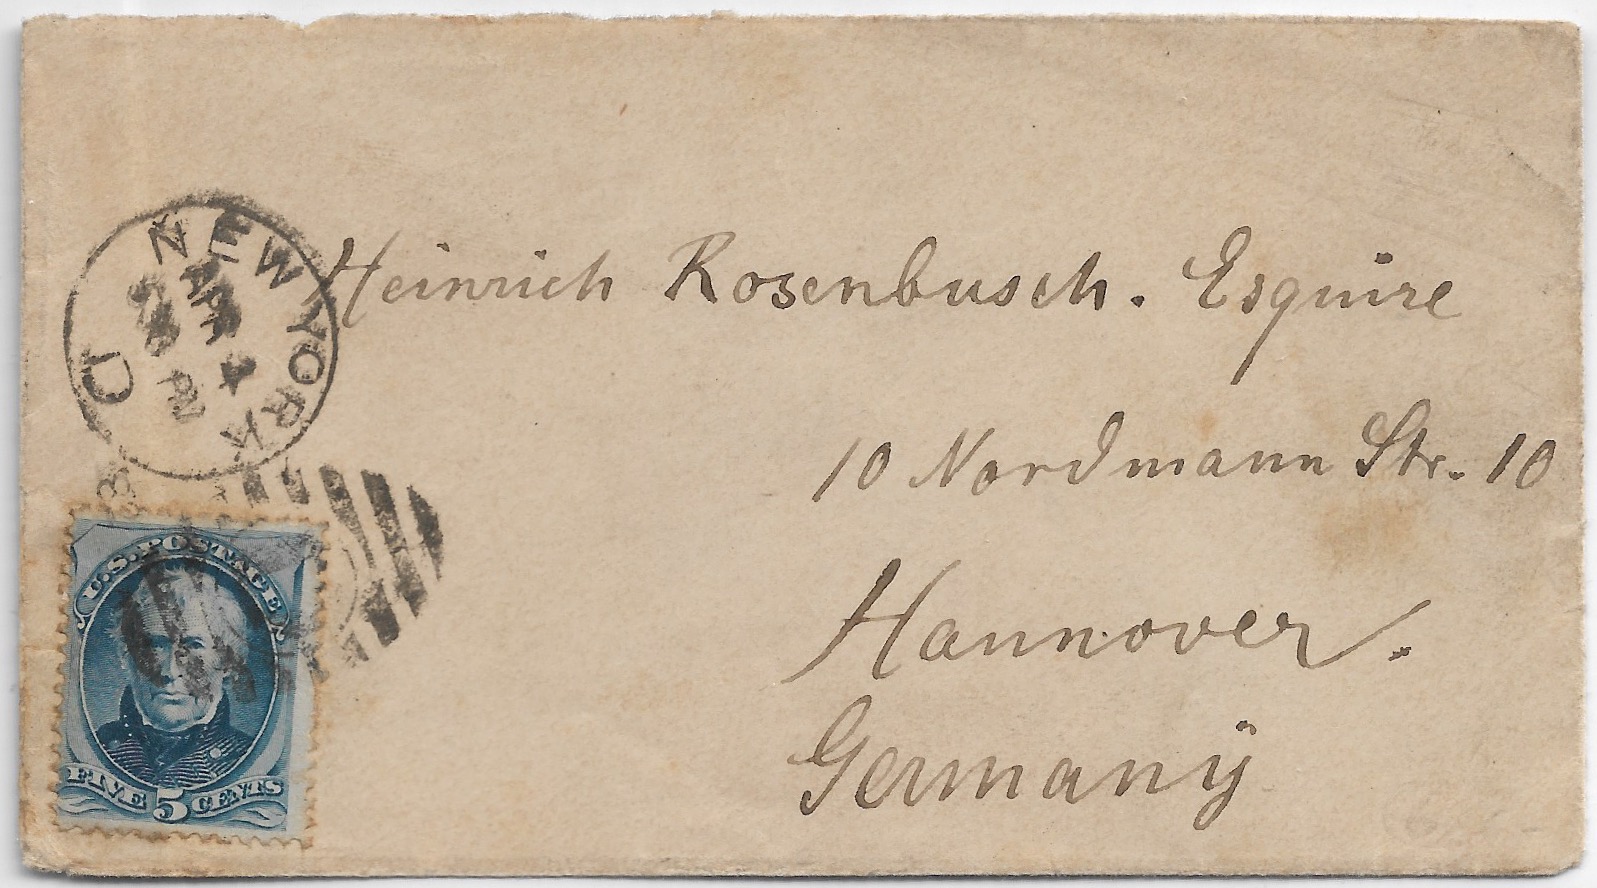 NEW YORK
APR
4
D
Heinrich Rosenbusch. Esquire
10 Nordmann Str. 10
Hannover.
Germanÿ
U.S. POSTAGE
FIVE 5 CENTS